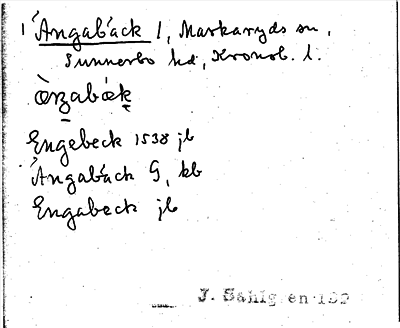 1 Ängabäck 1, Markaryds sn,
Sunnerbo hd, Kronob. l.
Engebeck 1538 jb
Ängabäck G, kb
Engabeck jb
J. Sahlgren